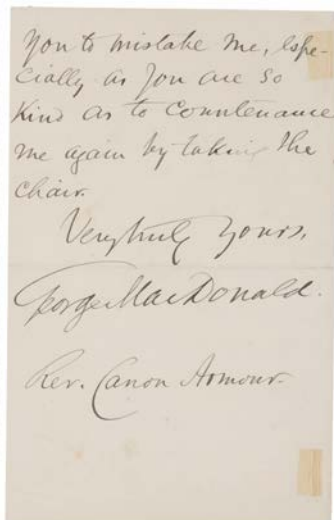 you to mistake me, espe-
cially as you are so
kind as to countenance
me again by taking the
chair.
Very truly yours,
George MacDonald.
Rev. Canon Armour.